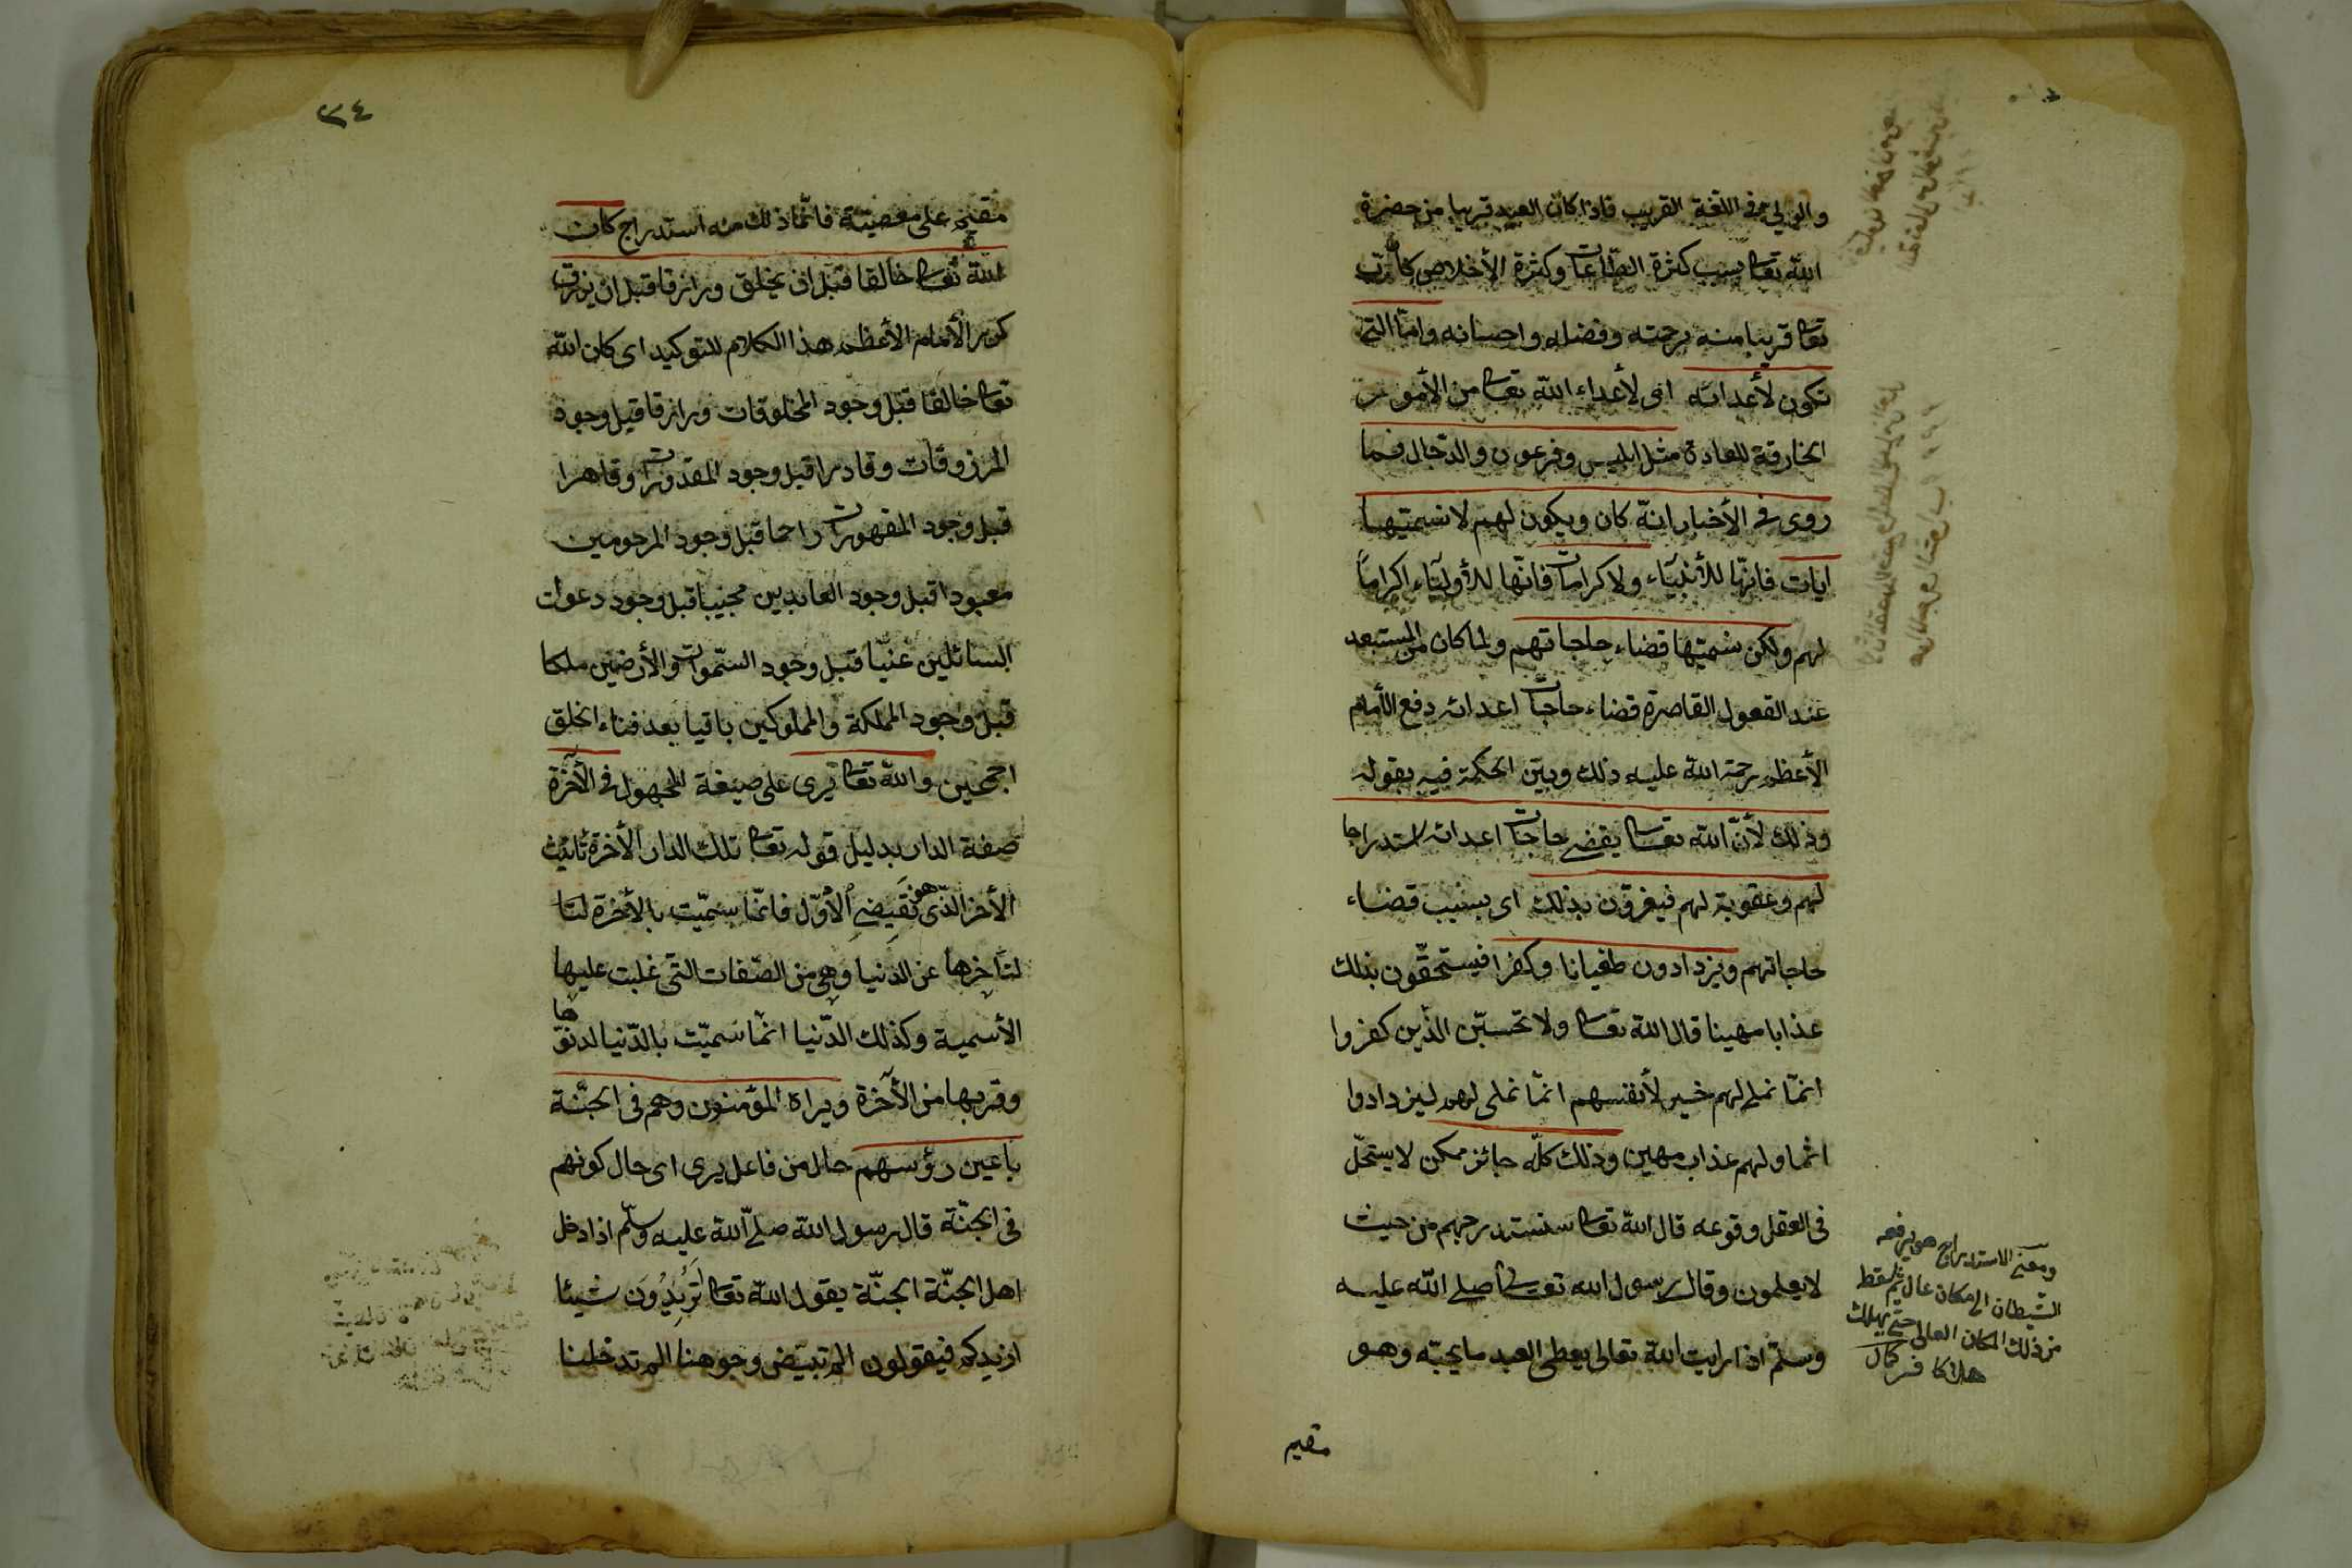 والولي في اللغة القريب فاذا كان العبد قريبا من حضرة
الله تعا بسبب كثرة الطاعات وكثرة الأخلاص كان الرب
تعا قريبا منه برحمته وفضله واحسانه وامّا التى
تكون لأعدائه اى لأعداء الله تعا من الأمور
الخارقة للعادة مثل ابليس وفرعون والدّجال فما
روى فى الأخبار انّه كان ويكون لهم لا نسمّيها
ايات فانّها للأنبياء ولا كرامات فانّها للأولياء اكراماً
لهم ولكن نسمّيها قضاء حاجاتهم ولما كان المستبعد
عند العقول القاصرة قضاء حاجات اعدائه دفع الأمام
الأعظم رحمة الله عليه ذلك وبيّن الحكمة فيه بقوله
وذلك لأنّ الله تعا يقضى حاجات اعدائه استدراجا
لهم وعقوبة لهم فيغرّون بذلك اى بسبب قضاء
حاجاتهم ويزدادون طغيانا وكفرا فيستحقّون بذلك
عذابا مهينا قال الله تعا ولا تحسبنّ الذّين كفروا
انمّا نملى لهم خير لأنفسهم انمّا نملى لهم ليزدادوا
اثما ولهم عذاب مهين وذلك كلّه جائز ممكن لا يستحلّ
فى العقل وقوعه قال الله تعا سنستدرجهم من حيث
لا يعلمون وقال رسول الله تعالى صلى الله عليه
وسلّم اذا رايت الله تعالى يعطى العبد ما يحبّه وهو
مقيم
ومعنى الاستدراج هو يرفعه
الشّيطان الى مكان عال ثم يسقط
من ذلك المكان العالى حتى يهلك
هلاكا
٣٤
مقيم على معصيّة فانمّا ذلك منه استدراج كان
الله تعا خالقا قبل ان يخلق ورازقا قبل ان يرزق
كرر الأمام الأعظم هذا الكلام للتوكيد اى كان الله
تعا خالقا قبل وجود المخلوقات ورازقا قبل وجود
المرزوقات وقادرا قبل وجود المقدورات وقاهرا
قبل وجود المقهورات راحما قبل وجود المرحومين
معبودا قبل وجود العابدين مجيبا قبل وجود دعوات
السائلين غنيّا قبل وجود السّموات والأرضين ملكا
قبل وجود المملكة والمملوكين باقيا بعد فناء الخلق
اجمعين والله تعا يرى على صيغة المجهول فى الآخرة
صفة الدار بدليل قوله تعا تلك الدار الأخرة تأنيث
الأخر الذّى هو نقيض الأوّل فانمّا سمّيت بالأخرة لنا
لتأخرها عن الدنيا وهى من الصّفات التّى غلبت عليها
الأسمية وكذلك الدّنيا انمّا سميّت بالدّنيا لدنوّها
وقربها من الآخرة ويراه المؤمنون وهم فى الجنّة
باعين رؤسهم حال من فاعل يرى اى حال كونهم
فى الجنّة قال رسول الله صلى الله عليه وسلّم اذا دخل
اهل الجنّة الجنّة يقول الله تعا اتريدون شيئا
ازيدكم فيقولون الم تبيّض وجوهنا الم تدخلنا